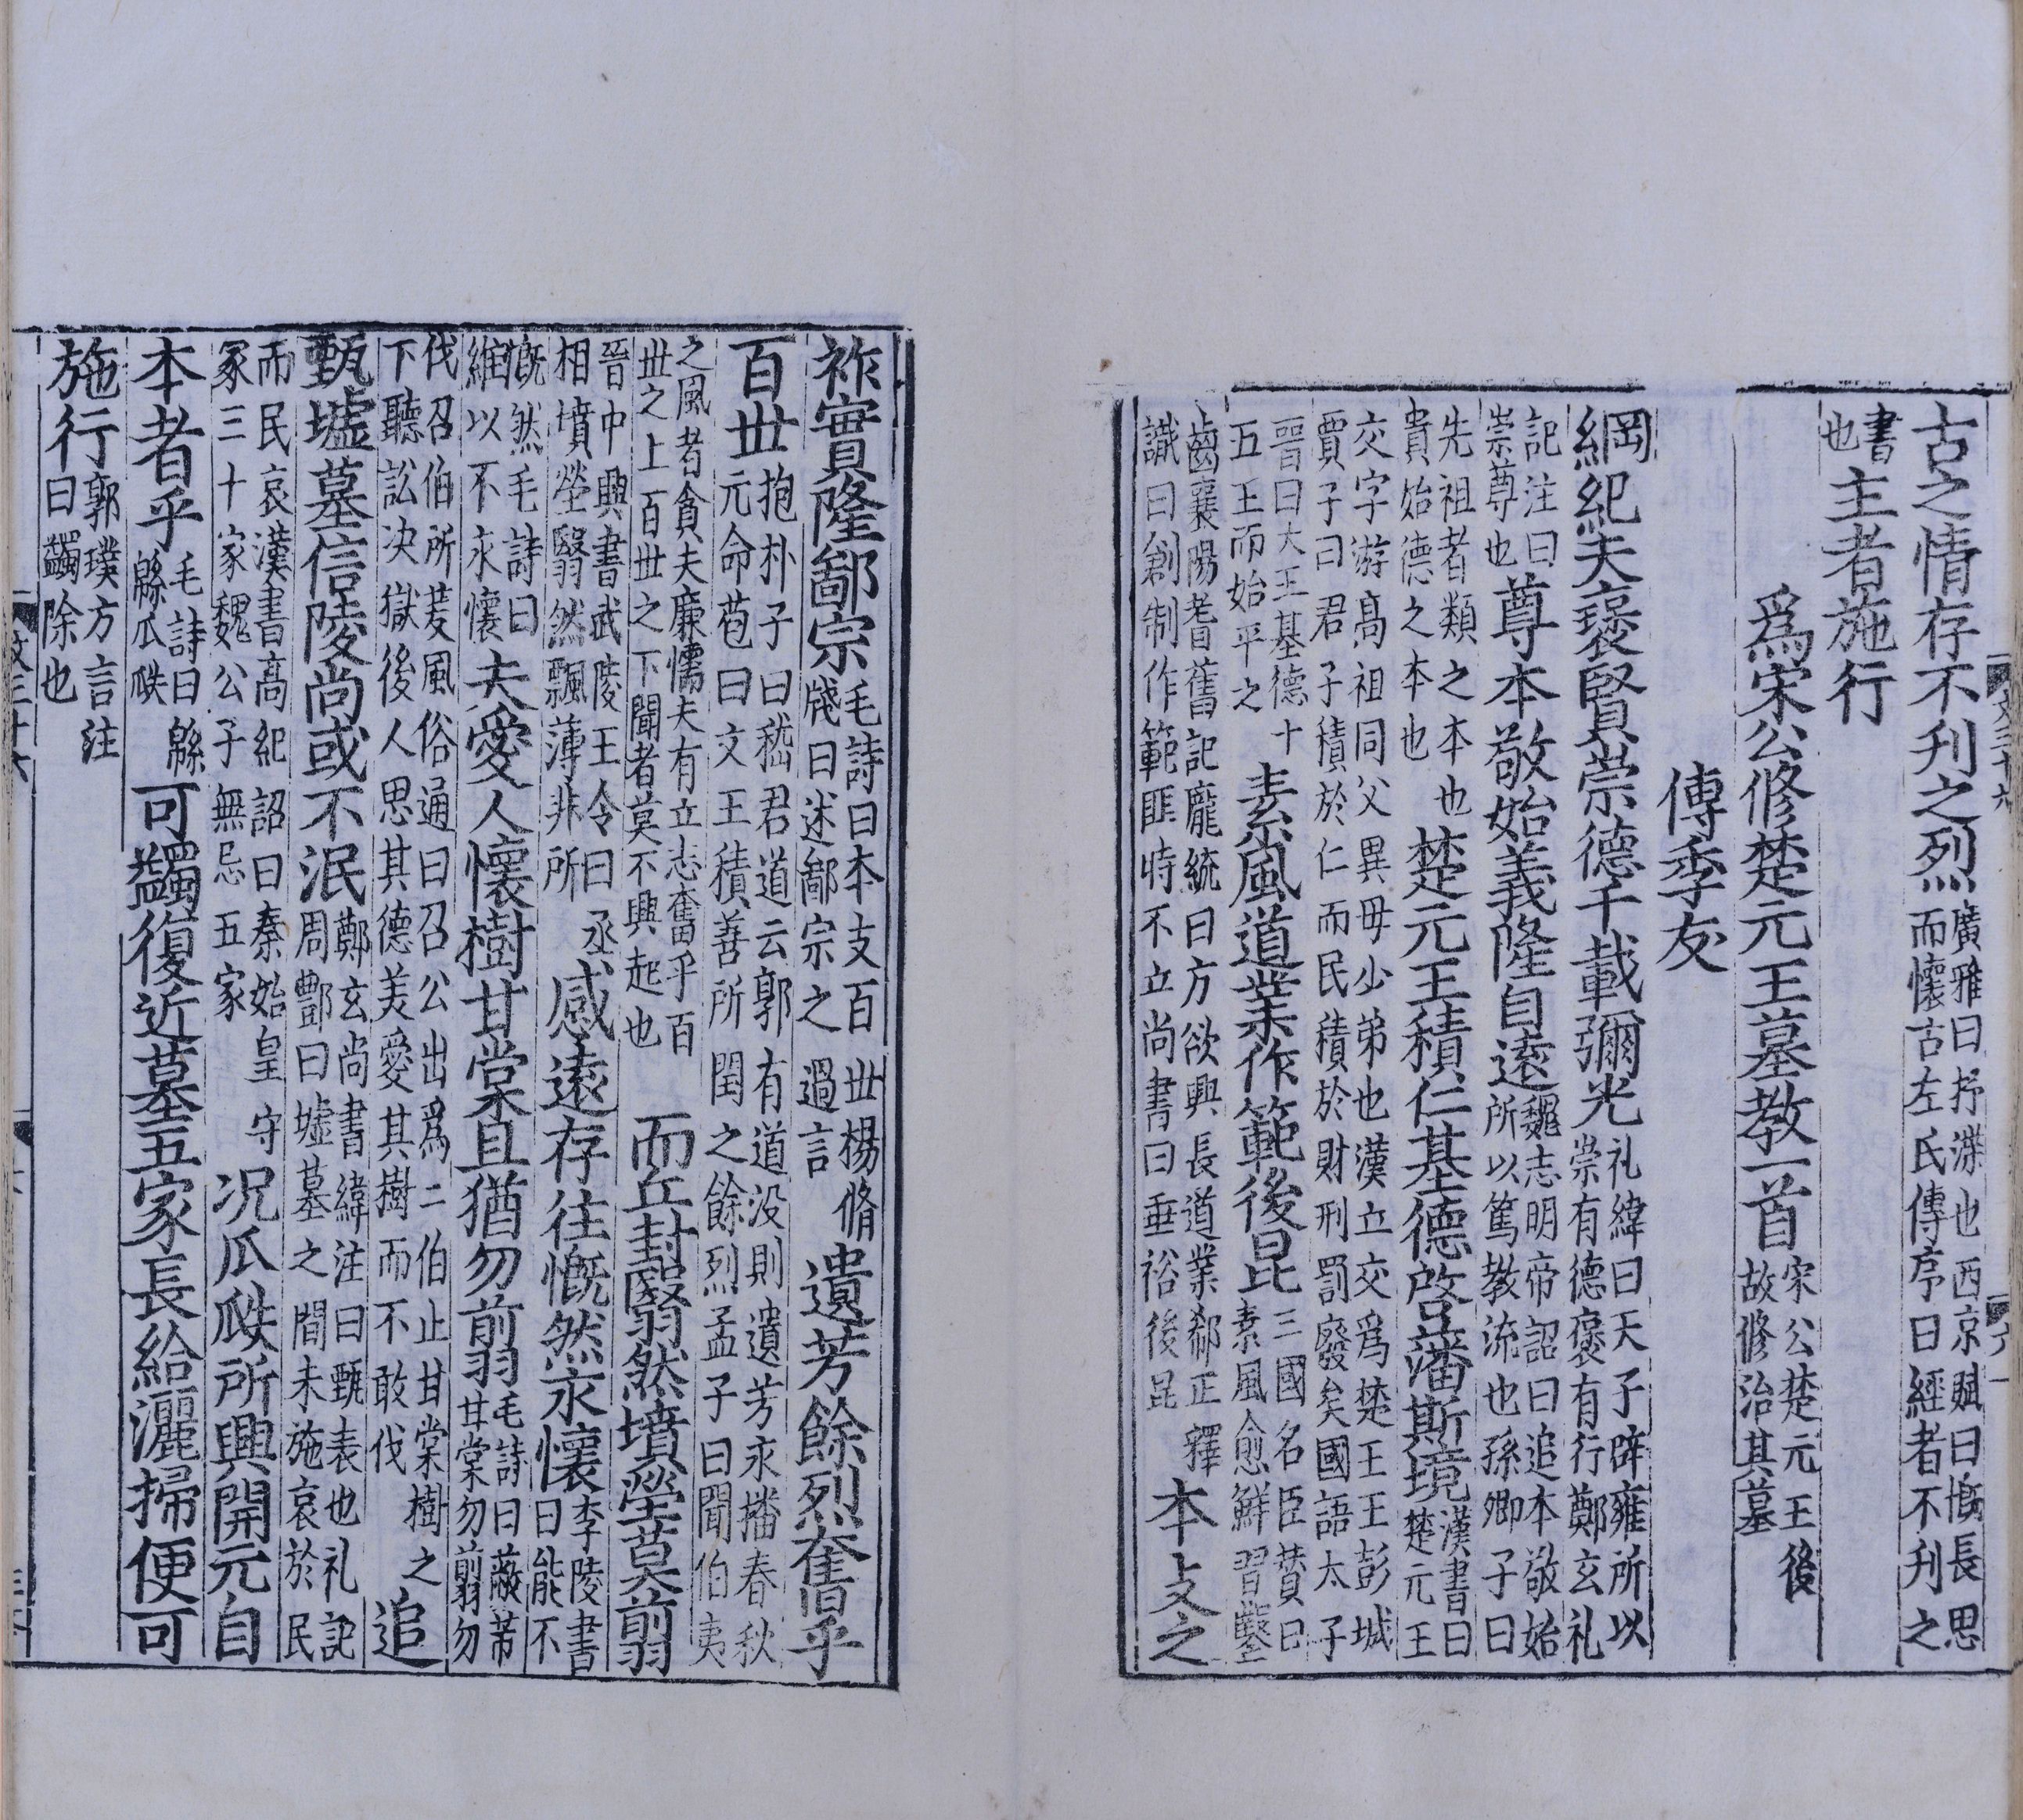 古之情存不刋之烈廣雅曰抒渫也西京賦曰慨長思而懷古左氏傳序曰經者不刋之
書也主者施行
爲宋公修楚元王墓教一首宋公楚元王後故修治其墓
傅季友
綱紀夫褒賢崇德千載彌光礼緯曰天子辟雍所以崇有德褒有行鄭玄礼
記注曰崇尊也尊本敬始義隆自遠魏志明帝詔曰追本敬始所以篤教流也孫卿子曰
先祖者類之本也貴始德之本也楚元王積仁基德啓藩斯境漢書曰楚元王
交字游髙祖同父異毋少弟也漢立交爲楚王王彭城賈子曰君子積於仁而民積於財刑罰廢矣國語太子
晉曰大王基德十五王而始平之素風道業作範後昆三國名臣賛曰素風愈鮮習鑿
齒襄陽耆舊記龐統曰方欲興長道業郗正釋譏曰創制作範匪時不立尚書曰垂裕後昆本支之
祚實隆鄙宗毛詩曰本支百丗楊脩牋曰述鄙宗之過言遺芳餘烈奮乎
百丗抱朴子曰嵇君道云郭有道没則遺芳永播春秋元命苞曰文王積善所閏之餘烈孟子曰聞伯夷
之風者貪夫廉懦夫有立志奮乎百丗之上百丗之下聞者莫不興起也而丘封翳然墳塋莫翦
晉中興書武陵王令曰丞相墳塋翳然飄薄非所感遠存往慨然永懷李陵書曰能不
慨然毛詩曰維以不永懷夫愛人懷樹甘棠且猶勿翦毛詩曰蔽芾甘棠勿翦勿
伐召伯所茇風俗通曰召公出爲二伯止甘棠樹之下聽訟决獄後人思其德美愛其樹而不敢伐追
甄墟墓信陵尚或不泯鄭玄尚書緯注曰甄表也礼記周酆曰墟墓之間未施哀於民
而民哀漢書髙紀詔曰秦始皇守冢三十家魏公子無忌五家况瓜瓞所興開元自
本者乎毛詩曰緜緜瓜瓞可蠲復近墓五家長給灑掃便可
施行郭璞方言注曰蠲除也